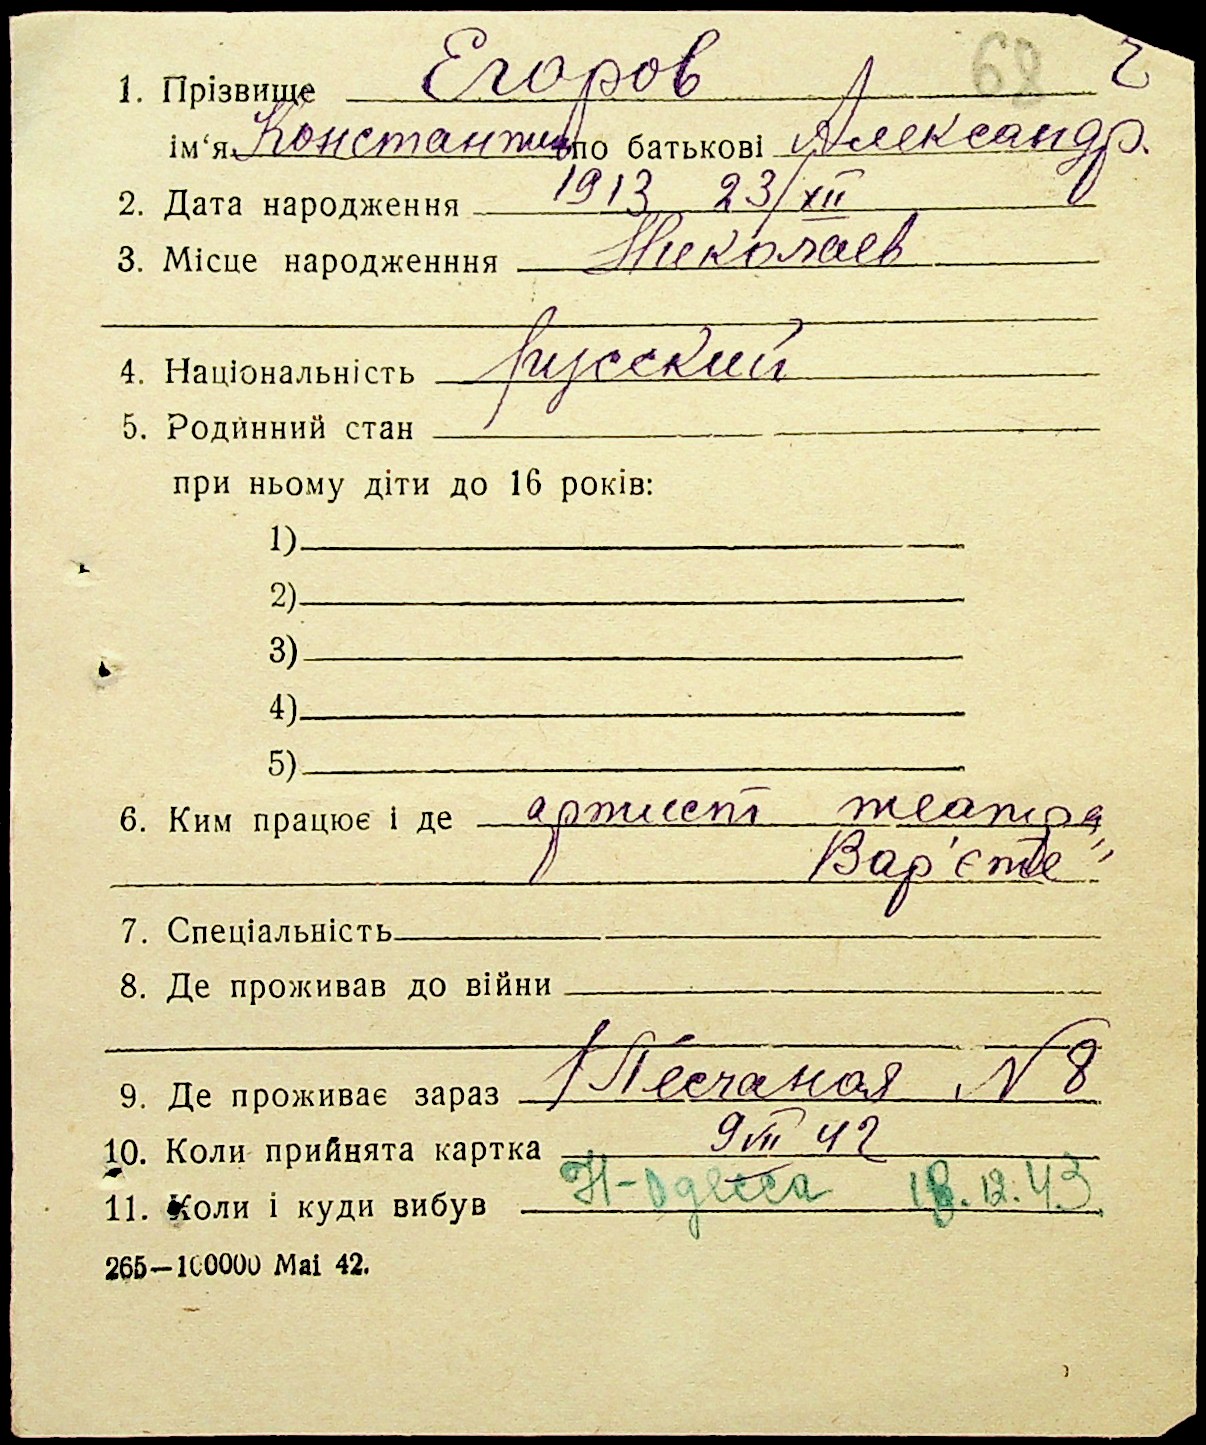 68 2
1. Прізвище Егоров
ім‘я Константин по батькові Александр.
2. Дата народження 1913 23/XII
3. Місце народженння Николаев
4. Національність русский
5. Родинний стан
при ньому діти до 16 років:
1)
2)
3)
4)
5)
6. Ким працює і де артист театра
Вар'єте"
7. Спеціальність
8. Де проживав до війни
9. Де проживає зараз Песчаная N 8
10. Коли прийнята картка 9 VII 42
11. Коли і куди вибув Н-Одесса 18.12.43.
265—100000 Mai 42.